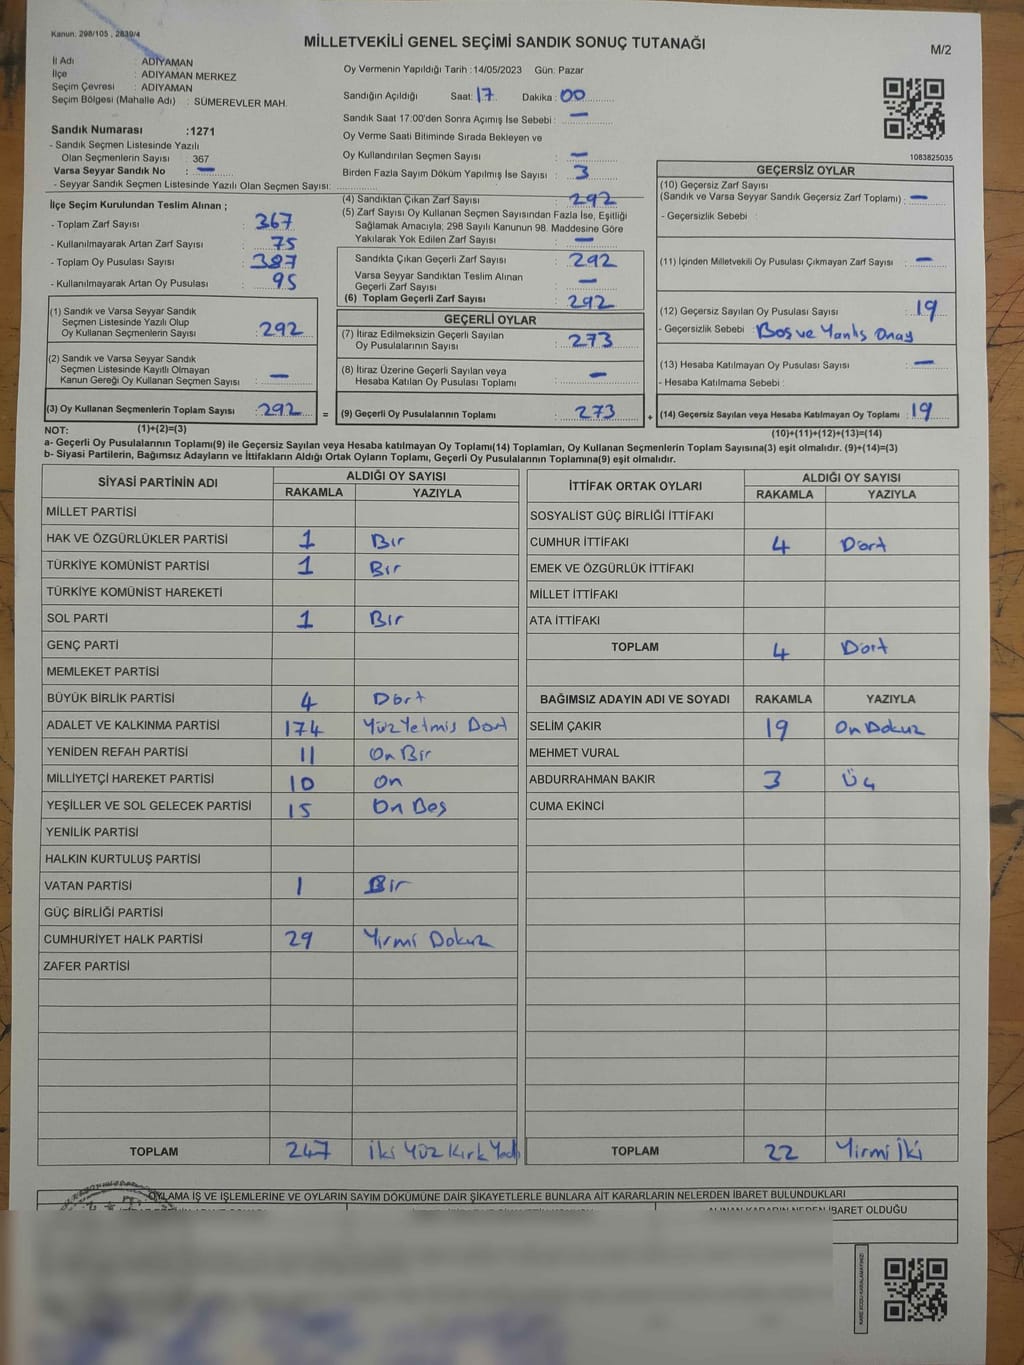 Kanun: 298/105 , 2839/4
MİLLETVEKİLİ GENEL SEÇİMİ SANDIK SONUÇ TUTANAĞI
M/2
İl Adı : ADIYAMAN
İlçe : ADIYAMAN MERKEZ
Seçim Çevresi : ADIYAMAN
Seçim Bölgesi (Mahalle Adı) : SÜMEREVLER MAH.
Sandık Numarası :1271
- Sandık Seçmen Listesinde Yazılı
Olan Seçmenlerin Sayısı : 367
Varsa Seyyar Sandık No : –
- Seyyar Sandık Seçmen Listesinde Yazılı Olan Seçmen Sayısı:
Oy Vermenin Yapıldığı Tarih :14/05/2023 Gün: Pazar
Sandığın Açıldığı Saat: 17 Dakika : 00
Sandık Saat 17:00'den Sonra Açımış İse Sebebi : –
Oy Verme Saati Bitiminde Sırada Bekleyen ve
Oy Kullandırılan Seçmen Sayısı : –
Birden Fazla Sayım Döküm Yapılmış İse Sayısı : 3
1083825035
İlçe Seçim Kurulundan Teslim Alınan ;
- Toplam Zarf Sayısı : 367
- Kullanılmayarak Artan Zarf Sayısı : 75
- Toplam Oy Pusulası Sayısı : 387
- Kullanılmayarak Artan Oy Pusulası : 95
(1) Sandık ve Varsa Seyyar Sandık
Seçmen Listesinde Yazılı Olup
Oy Kullanan Seçmen Sayısı : 292
(2) Sandık ve Varsa Seyyar Sandık
Seçmen Listesinde Kayıtlı Olmayan
Kanun Gereği Oy Kullanan Seçmen Sayısı : –
(3) Oy Kullanan Seçmenlerin Toplam Sayısı : 292 =
(4) Sandıktan Çıkan Zarf Sayısı : 292
(5) Zarf Sayısı Oy Kullanan Seçmen Sayısından Fazla İse, Eşitliği
Sağlamak Amacıyla; 298 Sayılı Kanunun 98. Maddesine Göre
Yakılarak Yok Edilen Zarf Sayısı : –
Sandıkta Çıkan Geçerli Zarf Sayısı : 292
Varsa Seyyar Sandıktan Teslim Alınan
Geçerli Zarf Sayısı : –
(6) Toplam Geçerli Zarf Sayısı : 292
GEÇERLİ OYLAR
(7) İtiraz Edilmeksizin Geçerli Sayılan
Oy Pusulalarının Sayısı : 273
(8) İtiraz Üzerine Geçerli Sayılan veya
Hesaba Katılan Oy Pusulası Toplamı : –
(9) Geçerli Oy Pusulalarının Toplamı : 273 +
GEÇERSİZ OYLAR
(10) Geçersiz Zarf Sayısı
(Sandık ve Varsa Seyyar Sandık Geçersiz Zarf Toplamı) : –
- Geçersizlik Sebebi :
(11) İçinden Milletvekili Oy Pusulası Çıkmayan Zarf Sayısı : –
(12) Geçersiz Sayılan Oy Pusulası Sayısı : 19
- Geçersizlik Sebebi : Boş ve Yanlış Onay
(13) Hesaba Katılmayan Oy Pusulası Sayısı : –
- Hesaba Katılmama Sebebi :
(14) Geçersiz Sayılan veya Hesaba Katılmayan Oy Toplamı : 19
NOT: (1)+(2)=(3)
(10)+(11)+(12)+(13)=(14)
a- Geçerli Oy Pusulalarının Toplamı(9) ile Geçersiz Sayılan veya Hesaba katılmayan Oy Toplamı(14) Toplamları, Oy Kullanan Seçmenlerin Toplam Sayısına(3) eşit olmalıdır. (9)+(14)=(3)
b- Siyasi Partilerin, Bağımsız Adayların ve İttifakların Aldığı Ortak Oyların Toplamı, Geçerli Oy Pusulalarının Toplamına(9) eşit olmalıdır.
SİYASİ PARTİNİN ADI
ALDIĞI OY SAYISI
RAKAMLA YAZIYLA
MİLLET PARTİSİ
HAK VE ÖZGÜRLÜKLER PARTİSİ 1 Bir
TÜRKİYE KOMÜNİST PARTİSİ 1 Bir
TÜRKİYE KOMÜNİST HAREKETİ
SOL PARTİ 1 Bir
GENÇ PARTİ
MEMLEKET PARTİSİ
BÜYÜK BİRLİK PARTİSİ 4 Dört
ADALET VE KALKINMA PARTİSİ 174 Yüz Yetmiş Dört
YENİDEN REFAH PARTİSİ 11 On Bir
MİLLİYETÇİ HAREKET PARTİSİ 10 On
YEŞİLLER VE SOL GELECEK PARTİSİ 15 On Beş
YENİLİK PARTİSİ
HALKIN KURTULUŞ PARTİSİ
VATAN PARTİSİ 1 Bir
GÜÇ BİRLİĞİ PARTİSİ
CUMHURİYET HALK PARTİSİ 29 Yirmi Dokuz
ZAFER PARTİSİ
TOPLAM 247 İki Yüz Kırk Yedi
İTTİFAK ORTAK OYLARI
ALDIĞI OY SAYISI
RAKAMLA YAZIYLA
SOSYALİST GÜÇ BİRLİĞİ İTTİFAKI
CUMHUR İTTİFAKI 4 Dört
EMEK VE ÖZGÜRLÜK İTTİFAKI
MİLLET İTTİFAKI
ATA İTTİFAKI
TOPLAM 4 Dört
BAĞIMSIZ ADAYIN ADI VE SOYADI RAKAMLA YAZIYLA
SELİM ÇAKIR 19 On Dokuz
MEHMET VURAL
ABDURRAHMAN BAKIR 3 Üç
CUMA EKİNCİ
TOPLAM 22 Yirmi İki
OYLAMA İŞ VE İŞLEMLERİNE VE OYLARIN SAYIM DÖKÜMÜNE DAİR ŞİKAYETLERLE BUNLARA AİT KARARLARIN NELERDEN İBARET BULUNDUKLARI
ALINAN KARARIN NEDEN İBARET OLDUĞU